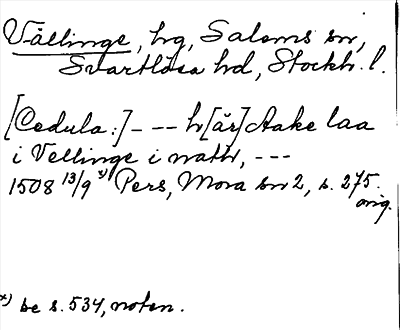 Vällinge, hg, Salems sn,
Svartlösa hd, Stockh. l.
[Cedula:] - -- hr [är] Aake laa
i Vellinge i natt, ---
1508 13/9 x) Pers, Mora br 2, s. 275.
orig.
x) se s. 534, noten.